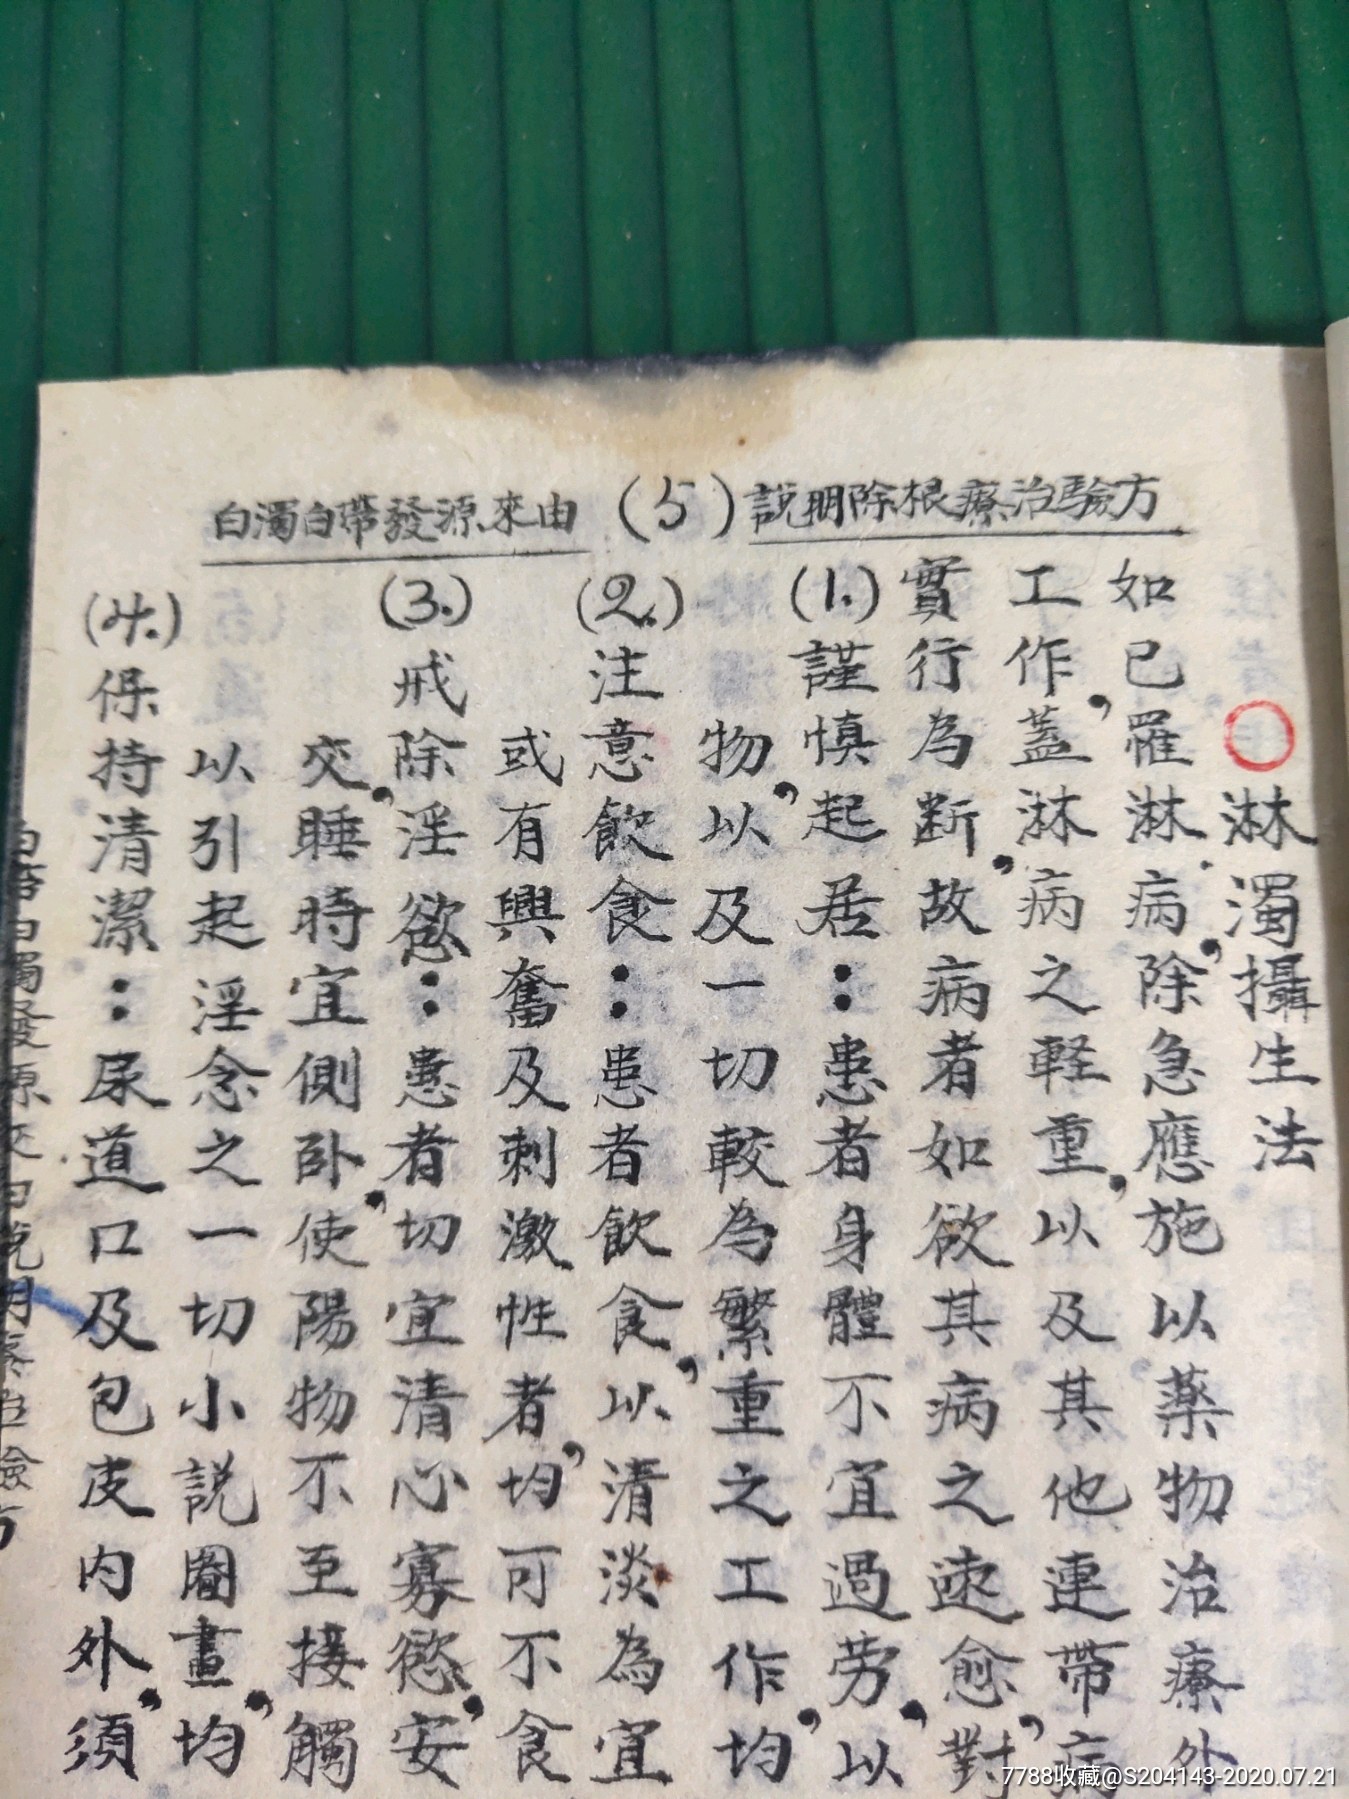 白濁白帶發源來由 (5) 説明除根療治驗方
○淋濁攝生法
如已罹淋病,除急應施以薬物治療外
工作,蓋淋病之軽重,以及其他連帶病
實行為断,故病者如欲其病之速愈,對
(1.)謹慎起居:患者身體不宜過劳,以
物,以及一切較為繁重之工作,均
(2.)注意飲食:患者飲食,以清淡為宜
或有興奮及刺激性者,均可不食
(3.)戒除淫慾:患者切宜清心寡慾,安
交,睡時宜側卧,使陽物不至接觸
以引起淫念之一切小説圖畫,均
(4.)保持清潔:尿道口及包皮内外,須
7788收藏@S204143-2020.07.21